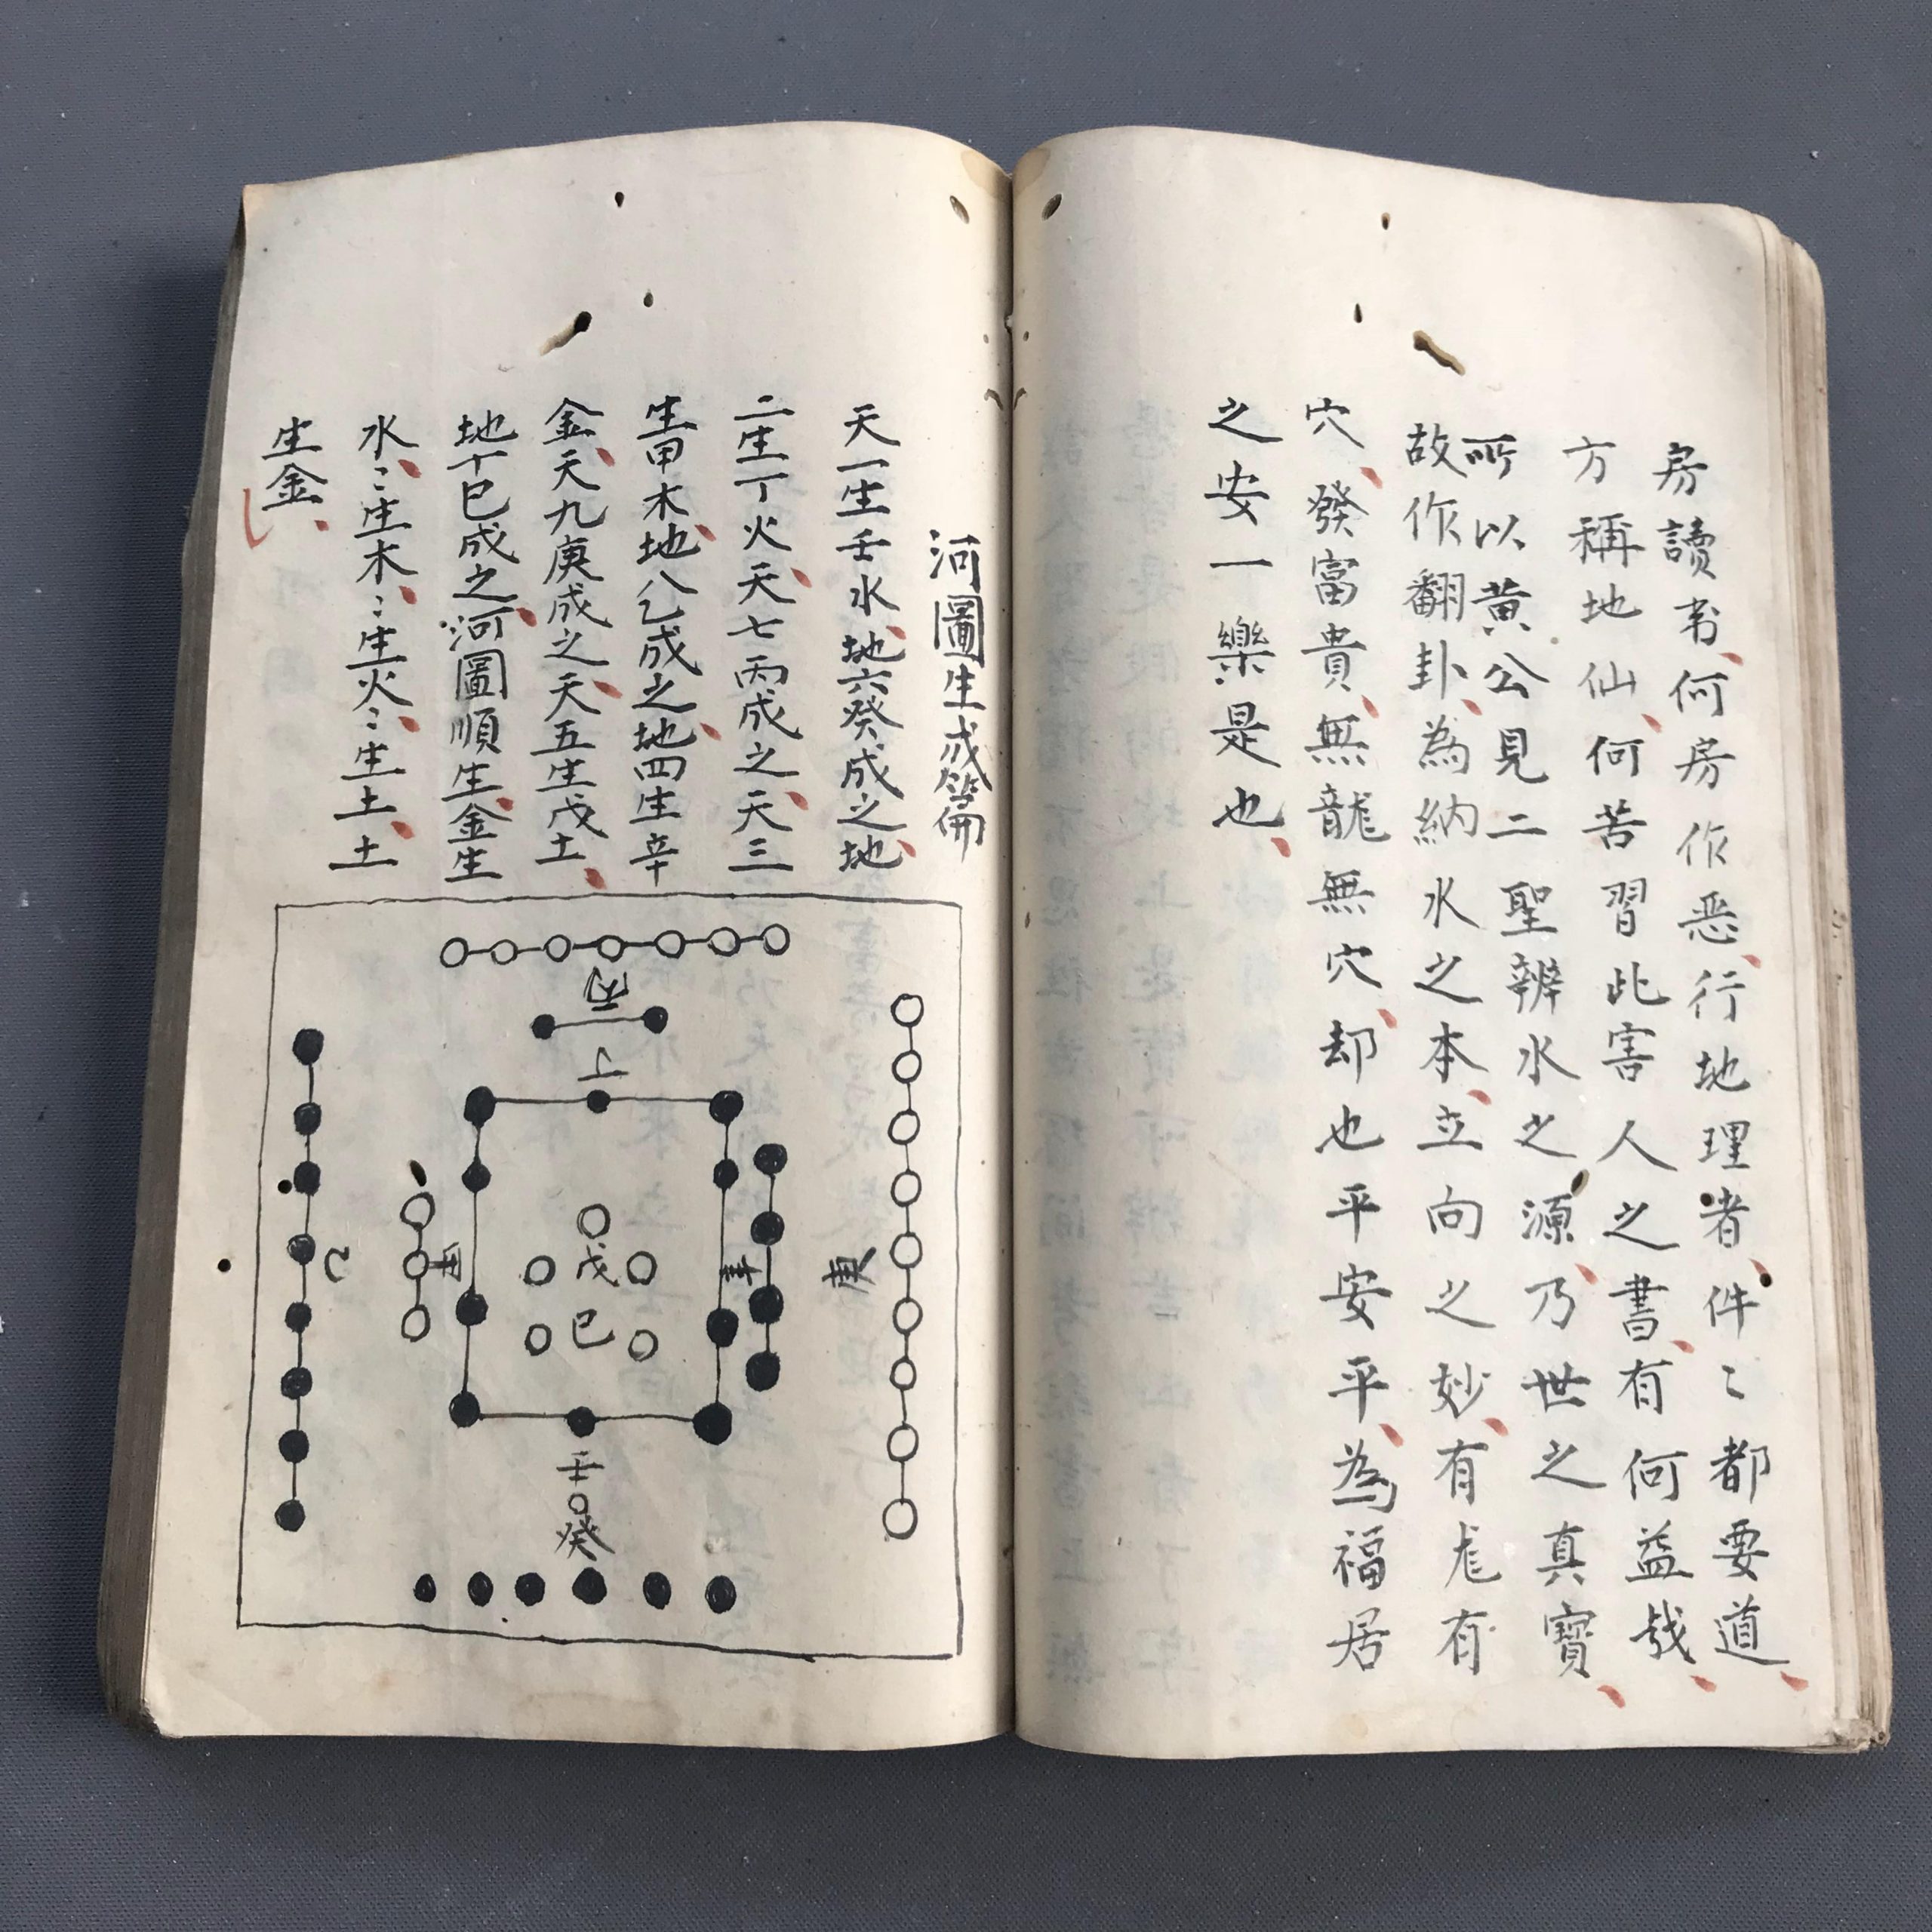 房讀書何房作惡行地理者件〻都要道
方稱地仙何苦習此害人之書有何益哉
所以黃公見二聖辨水之源乃世之真寶
故作翻卦為納水之本立向之妙有龙有
穴發富貴無龍無穴却也平安平為福居
之安一樂是也
河圖生成篇
天一生壬水地六癸成之地
二生丁火天七丙成之天三
生甲木地八乙成之地四生辛
金天九庚成之天五生戊土
地十巳成之河圖順生金生
水〻生木〻生火〻生土土
生金
丙
丁
乙
甲
戊
巳
辛
庚
壬
癸